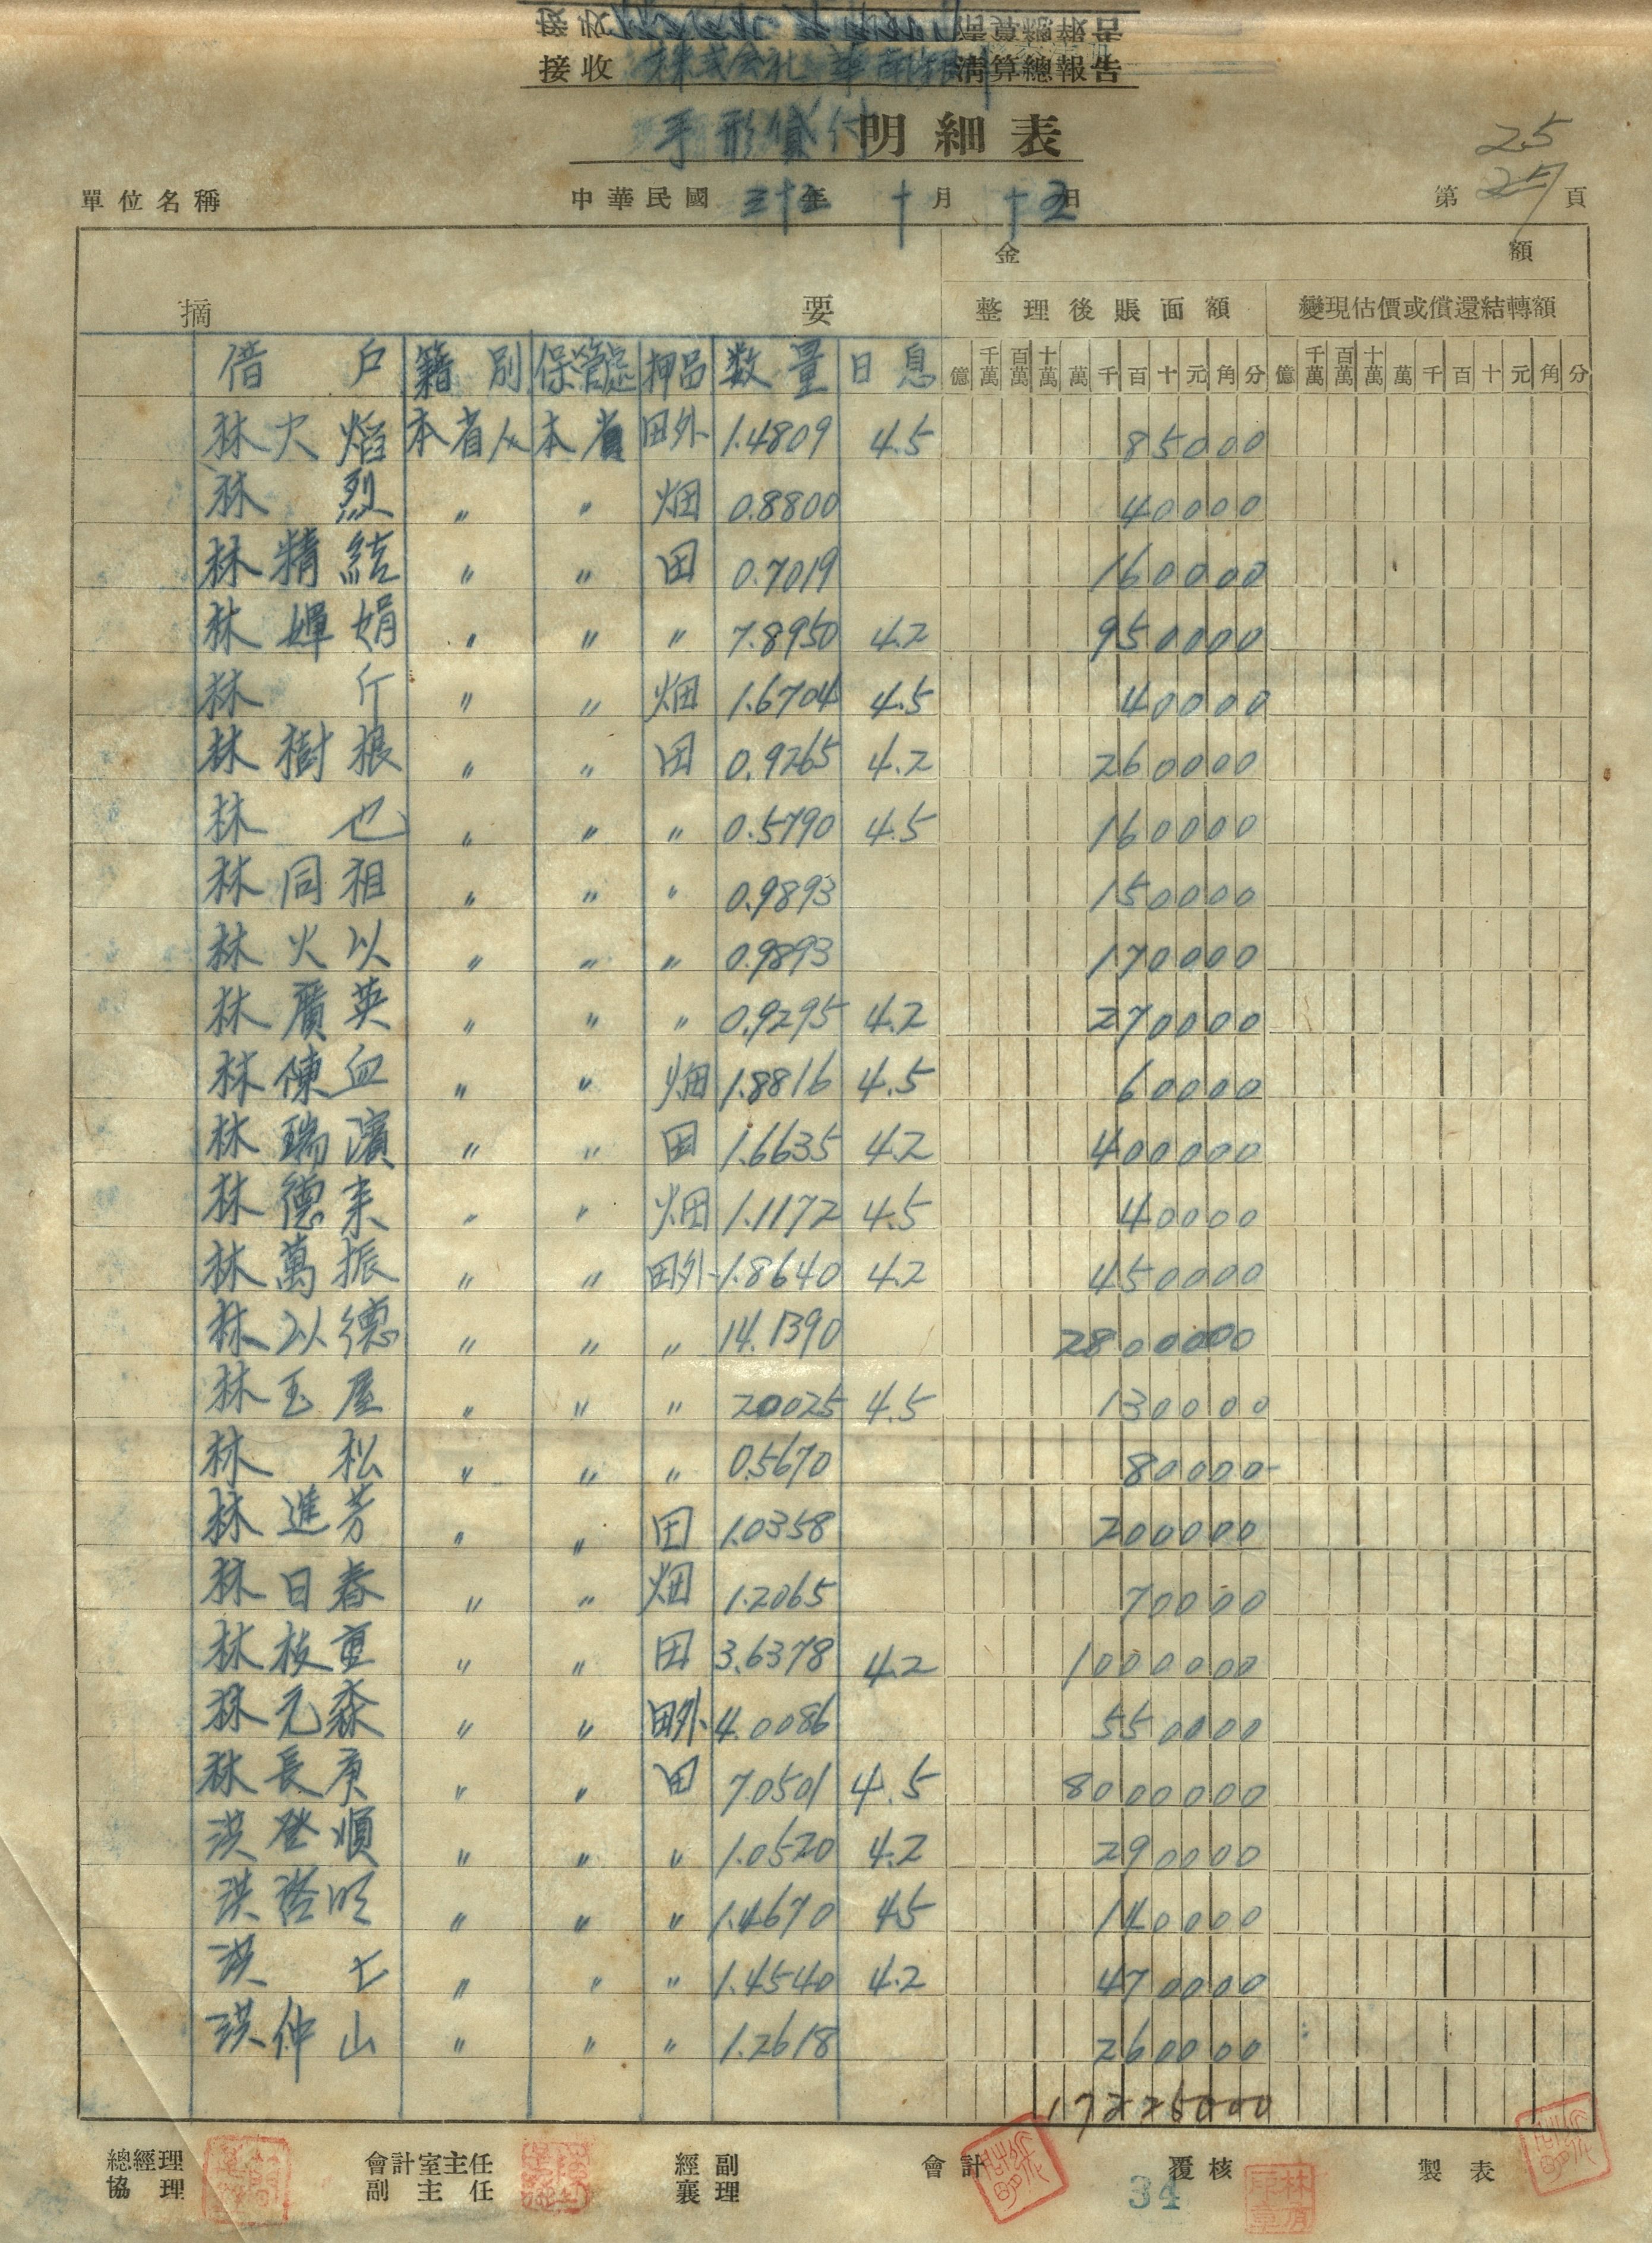 接收 株式会社 華南銀行 清算總報告
手形貸付 明細表
25
單位名稱 中華民國 三十五年 十月 十五日 第 頁
金 額
摘 要 整理後賬面額 變現估價或償還結轉額
億 千萬 百萬 十萬 萬 千 百 十 元 角 分 億 千萬 百萬 十萬 萬 千 百 十 元 角 分
借戶 籍別 保管處 押品 数量 日息
林火焰 本省人 本省 田外 1.4809 4.5 85000
林烈 〃 〃 畑 0.8800 40000
林精結 〃 〃 田 0.7019 160000
林嬋娟 〃 〃 〃 7.8950 4.2 950000
林斤 〃 〃 畑 1.6704 4.5 40000
林樹根 〃 〃 田 0.9265 4.2 260000
林也 〃 〃 〃 0.5790 4.5 160000
林同祖 〃 〃 〃 0.9893 150000
林火以 〃 〃 〃 0.9893 170000
林廣英 〃 〃 〃 0.9295 4.2 270000
林陳血 〃 〃 畑 1.8816 4.5 60000
林瑞濱 〃 〃 田 1.6635 4.2 400000
林德来 〃 〃 畑 1.1172 4.5 40000
林萬振 〃 〃 田外 1.8640 4.2 450000
林以德 〃 〃 〃 14.1390 2800000
林玉屋 〃 〃 〃 20025 4.5 130000
林松 〃 〃 〃 0.5670 80000
林進芳 〃 〃 田 1.0358 200000
林日春 〃 〃 畑 1.2065 70000
林枝重 〃 〃 田 3.6378 4.2 1000000
林元森 〃 〃 田外 4.0086 550000
林長庚 〃 〃 田 7.0501 4.5 8000000
洪登順 〃 〃 〃 1.0520 4.2 290000
洪啓明 〃 〃 〃 1.4670 45 140000
洪七 〃 〃 〃 1.4540 4.2 470000
洪仲山 〃 〃 〃 1.2618 260000
17225000
總經理 會計室主任 經副 會計 覆核 製表
協理 副主任 襄理
34